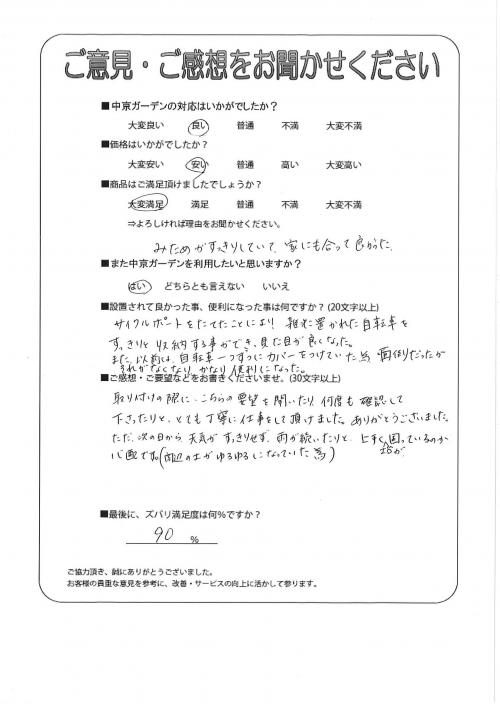 ご意見・ご感想をお聞かせください
■中京ガーデンの対応はいかがでしたか？
大変良い 良い 普通 不満 大変不満
■価格はいかがでしたか？
大変安い 安い 普通 高い 大変高い
■商品はご満足頂けましたでしょうか？
大変満足 満足 普通 不満 大変不満
⇒よろしければ理由をお聞かせください。
みためがすっきりしていて、家にも合って良かった。
■また中京ガーデンを利用したいと思いますか？
はい どちらとも言えない いいえ
■設置されて良かった事、便利になった事は何ですか？(20文字以上)
サイクルポートをたてたことにより、雑に置かれた自転車を
すっきりと収納する事ができ、見た目が良くなった。
また、以前は、自転車一つずつにカバーをつけていた為、面倒だったが
それがなくなり、かなり便利になった。
■ご感想・ご要望などをお書きくださいませ。(30文字以上)
取り付けの際に、こちらの要望を聞いたり、何度も確認して
下さったりと、とても丁寧に仕事をして頂けました。ありがとうございました。
ただ、次の日から天気がすっきりせず、雨が続いたりと、上手く固っているのか
心配です。(周辺の土がゆるゆるになっていた為)
■最後に、ズバリ満足度は何%ですか？
90 %
ご協力頂き、誠にありがとうございました。
お客様の貴重な意見を参考に、改善・サービスの向上に活かして参ります。